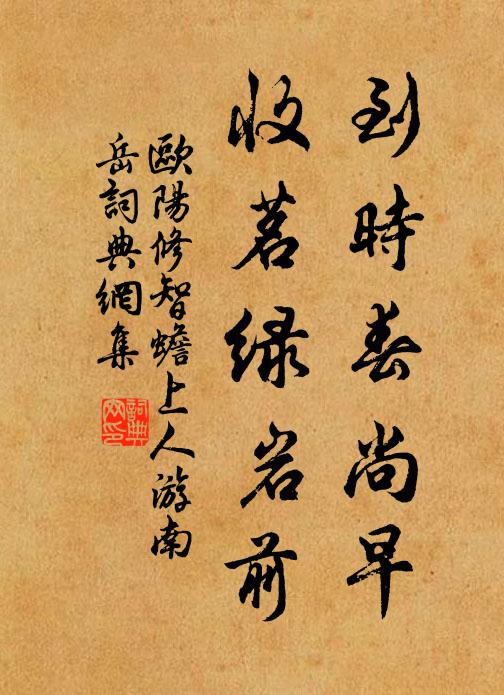 到時春尚早
收茗緑岩前
歐陽修智蟾上人游南
岳詞典網集
詞典网印